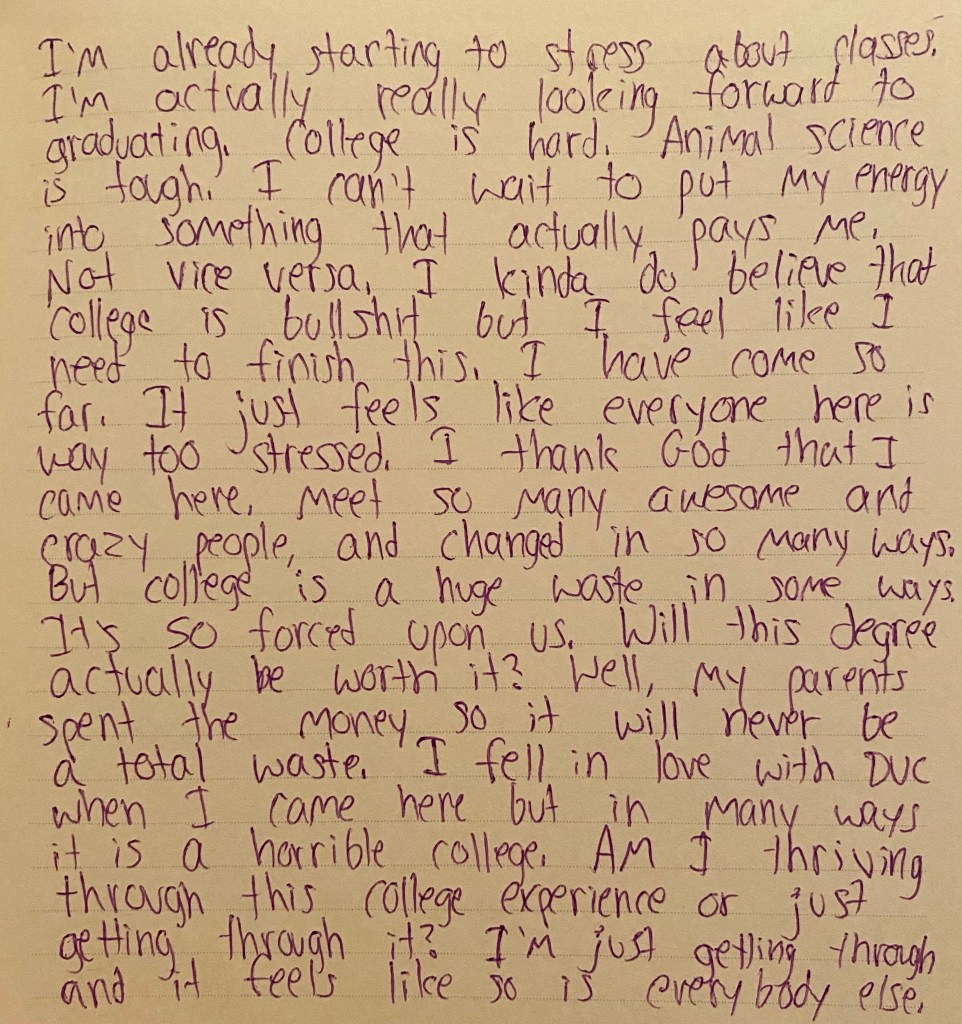 I'm already starting to stress about classes.
I'm actually really looking forward to
graduating. College is hard. Animal science
is tough. I can't wait to put my energy
into something that actually pays me.
Not vice versa. I kinda do believe that
college is bullshit but I feel like I
need to finish this. I have come so
far. It just feels like everyone here is
way too stressed. I thank God that I
came here, meet so many awesome and
crazy people, and changed in so many ways.
But college is a huge waste in some ways.
It's so forced upon us. Will this degree
actually be worth it? Well, my parents
spent the money so it will never be
a total waste. I fell in love with DUC
when I came here but in many ways
it is a horrible college. Am I thriving
through this college experience or just
getting through it? I'm just getting through
and it feels like so is everybody else.